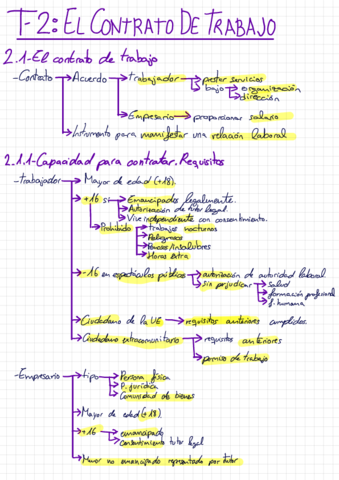 T-2: EL CONTRATO DE TRABAJO
2.1-El contrato de trabajo
-Contrato → Acuerdo → trabajador → prestar servicios
bajo → organización
→ dirección
→ Empresario → proporcionar salario
→ Instrumento para manifestar una relación laboral
2.1.1-Capacidad para contratar. Requisitos
-trabajador → Mayor de edad (+18).
→ +16 si → Emancipados legalmente.
→ Autorización de tutor legal
→ Vive independiente con consentimiento.
→ Prohibido → trabajos nocturnos
→ Peligrosos
→ Penosos/insalubres
→ Horas extra
→ -16 en espectáculos públicos → autorización de autoridad laboral
→ Sin perjudicar → salud
→ formación profesional
→ f. humana
→ Ciudadano de la UE → requisitos anteriores cumplidos.
→ Ciudadano extracomunitario → requisitos anteriores
→ permiso de trabajo
-Empresario → tipo → Persona física
→ P. jurídica
→ Comunidad de bienes
→ Mayor de edad (+18)
→ +16 → emancipado
→ consentimiento tutor legal
→ Menor no emancipado representado por tutor